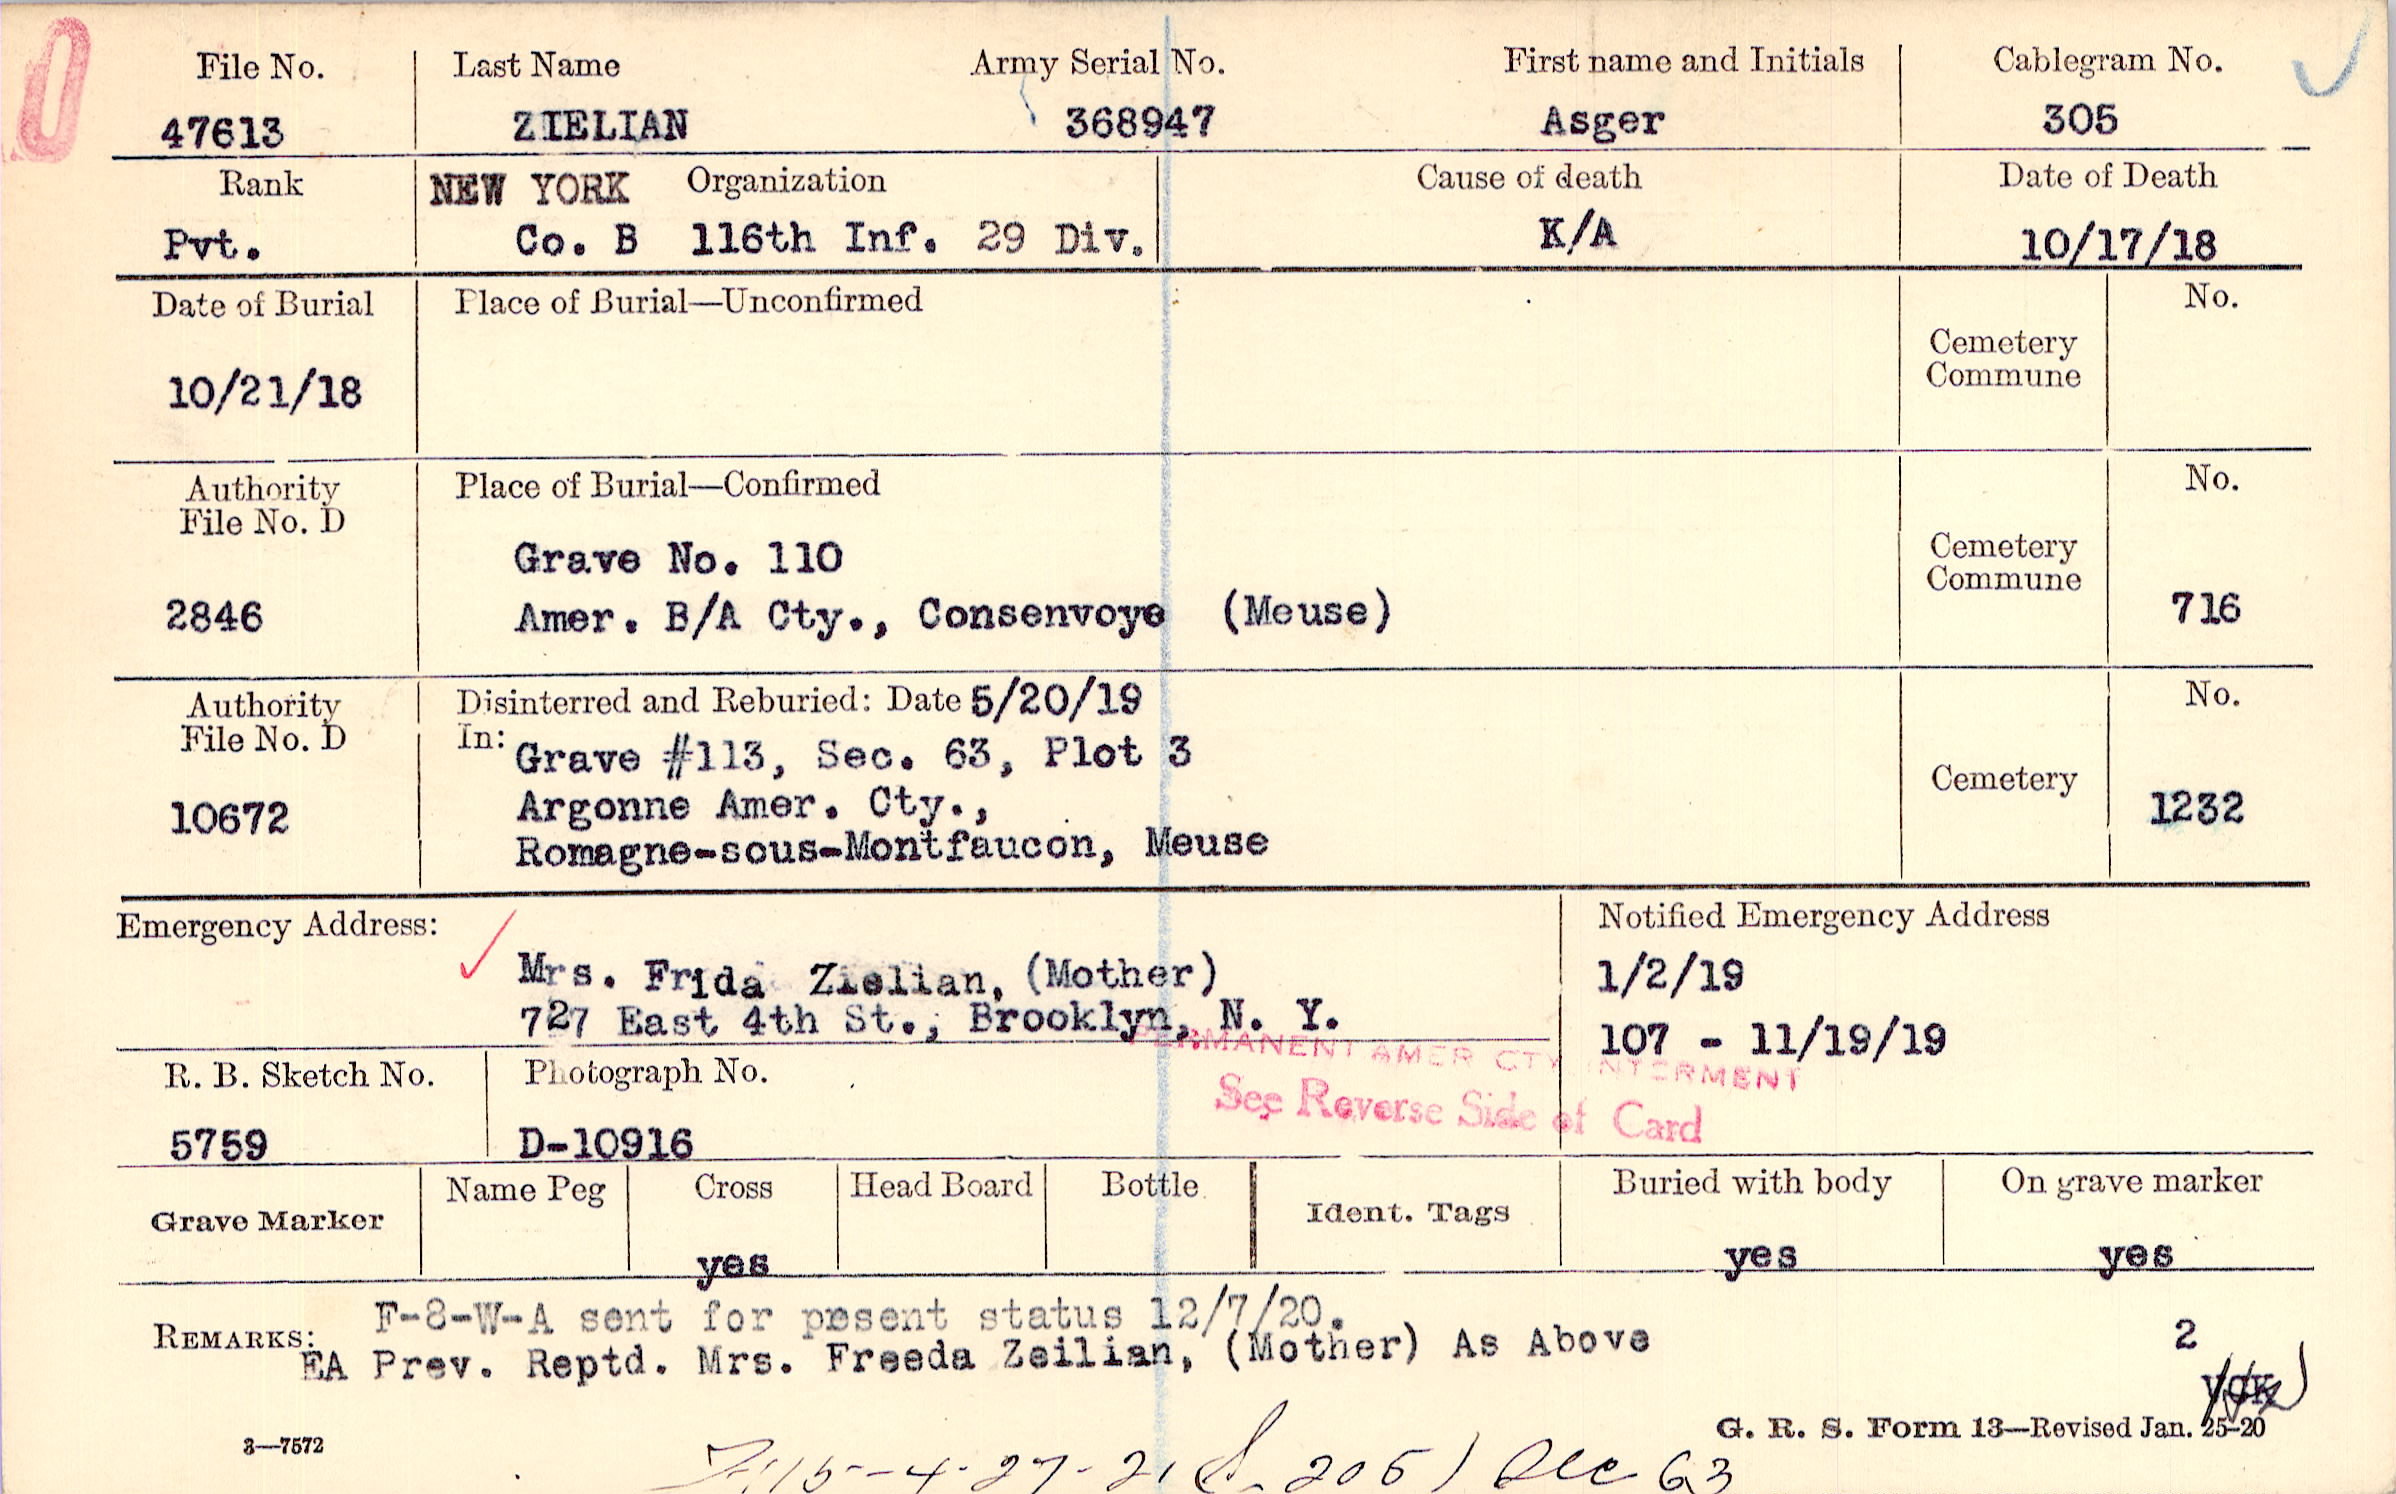 File No. Last Name Army Serial No. First name and Initials Cablegram No.
47613 ZIELIAN 368947 Asger 305
Rank NEW YORK Organization Cause of death Date of Death
Pvt. Co. B 116th Inf. 29 Div. K/A 10/17/18
Date of Burial Place of Burial—Unconfirmed No.
Cemetery
Commune
10/21/18
Authority Place of Burial—Confirmed No.
File No. D
Grave No. 110 Cemetery
Commune
2846 Amer. B/A Cty., Consenvoye (Meuse) 716
Authority Disinterred and Reburied: Date 5/20/19 No.
File No. D In: Grave #113, Sec. 63, Plot 3
Cemetery
10672 Argonne Amer. Cty., 1232
Romagne-sous-Montfaucon, Meuse
Emergency Address: Notified Emergency Address
Mrs. Frida Zielian, (Mother) 1/2/19
727 East 4th St., Brooklyn, N. Y. 107 - 11/19/19
PERMANENT AMER CTY INTERMENT
R. B. Sketch No. Photograph No.
See Reverse Side of Card
5759 D-10916
Grave Marker Name Peg Cross Head Board Bottle Ident. Tags Buried with body On grave marker
yes yes yes
F-8-W-A sent for present status 12/7/20.
REMARKS: EA Prev. Reptd. Mrs. Freeda Zeilian, (Mother) As Above 2
G. R. S. Form 13—Revised Jan. 25-20
3—7572
4-27-21 205) Dec 63